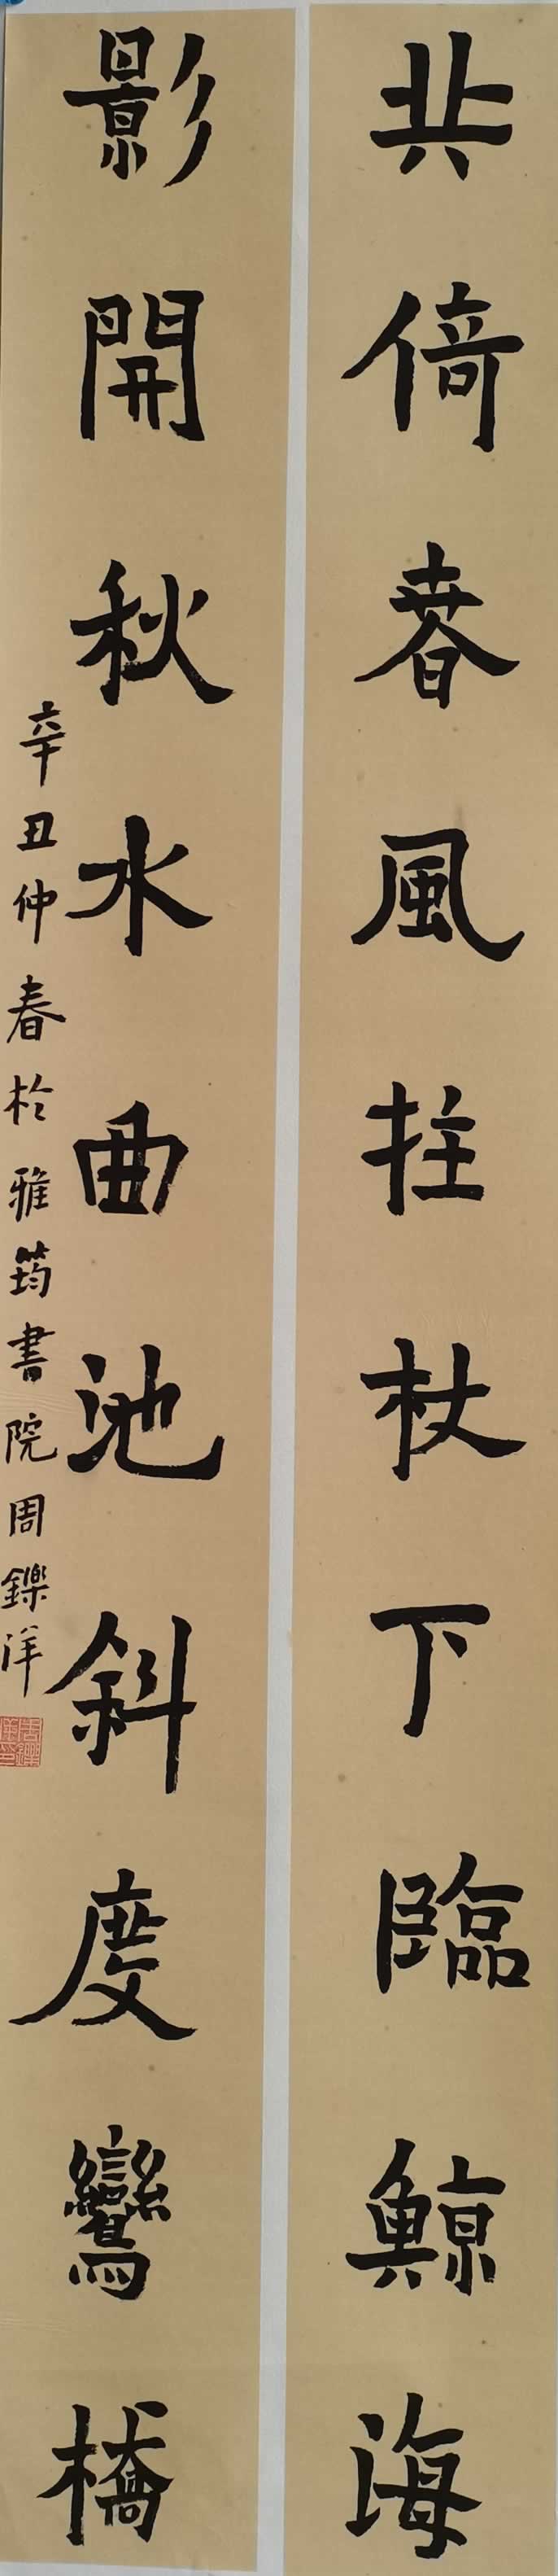 共倚春風拄杖下臨鯨海
影開秋水曲池斜度鸞橋
辛丑仲春於雅筠書院周鑠洋